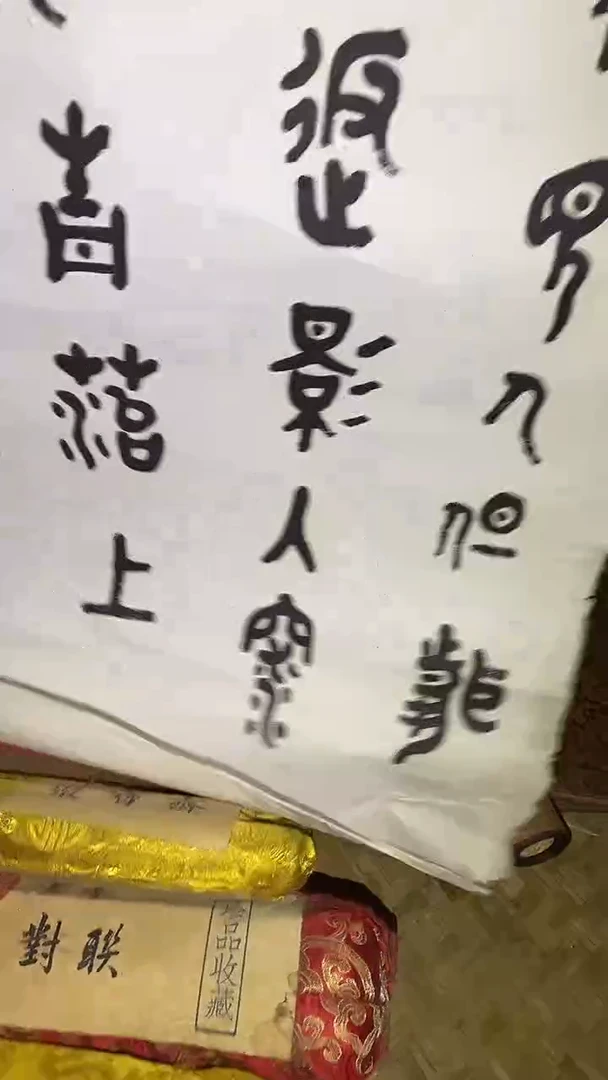 見人但聞
返影入深
青苔上
對聯
品收藏